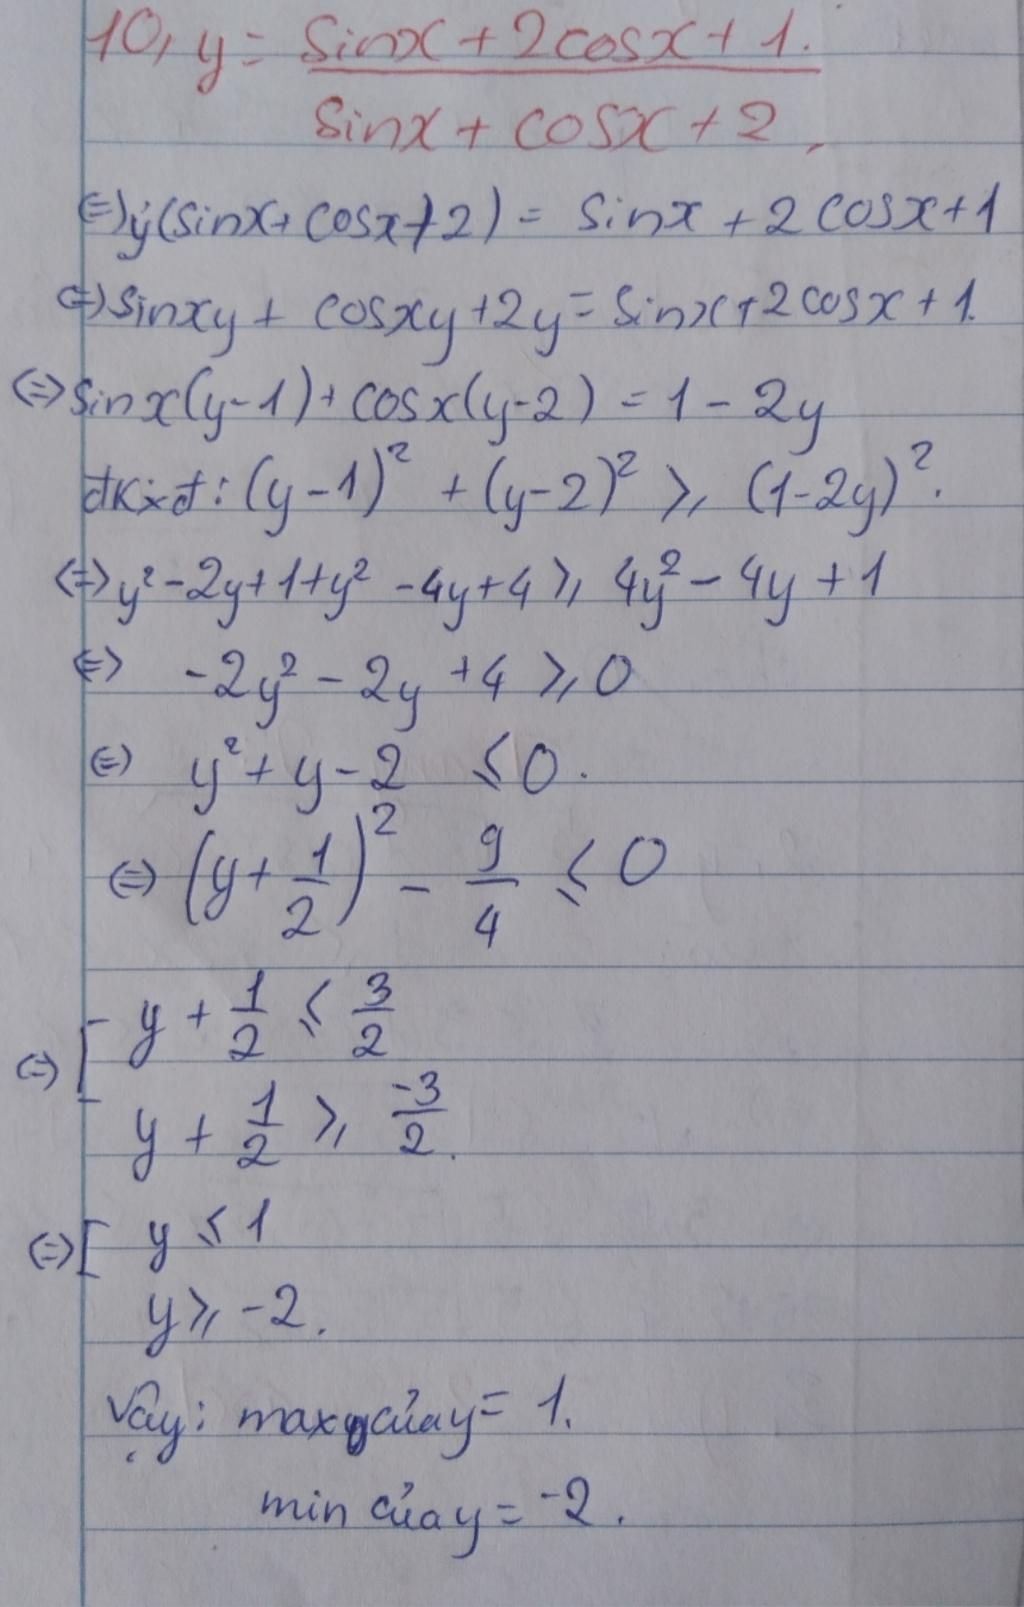 10, y = \frac{sinx + 2cosx + 1.}{sinx + cosx + 2},
⇔ y(sinx + cosx + 2) = sinx + 2cosx + 1
⇔ sinxy + cosxy + 2y = sinx + 2cosx + 1.
⇔ sinx(y-1) + cosx(y-2) = 1 - 2y
đkxđ: (y-1)² + (y-2)² ≥ (1-2y)².
⇔ y² - 2y + 1 + y² - 4y + 4 ≥ 4y² - 4y + 1
⇔ -2y² - 2y + 4 ≥ 0
⇔ y² + y - 2 ≤ 0.
⇔ (y + \frac{1}{2})² - \frac{9}{4} ≤ 0
⇔ [ y + \frac{1}{2} ≤ \frac{3}{2}
y + \frac{1}{2} ≥ \frac{-3}{2}.
⇔ [ y ≤ 1
y ≥ -2.
Vậy: max của y = 1.
min của y = -2.